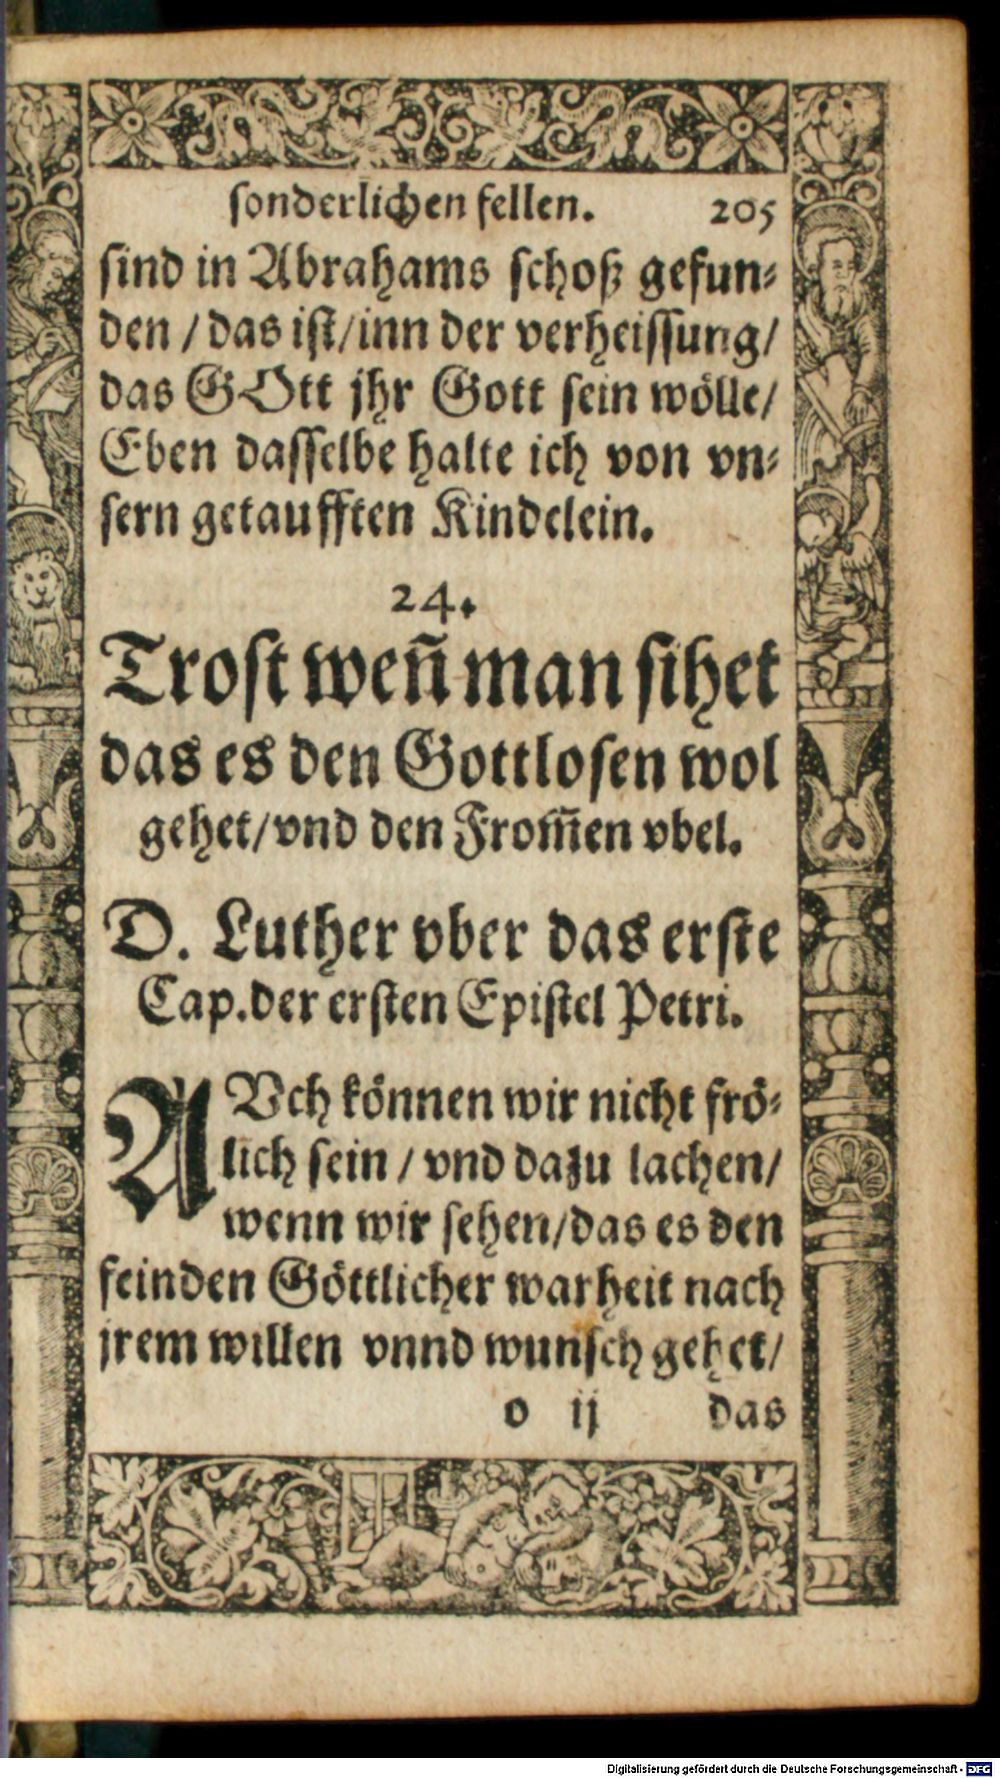 sonderlichen fellen. 205
sind in Abrahams schoß gefun⸗
den / das ist/inn der verheissung/
das GOtt jhr Gott sein wölle/
Eben dasselbe halte ich von vn⸗
sern getaufften Kindelein.
24.
Trost weñ man sihet
das es den Gottlosen wol
gehet/vnd den From̃en vbel.
D. Luther vber das erste
Cap.der ersten Epistel Petri.
AVch können wir nicht frö⸗
lich sein / vnd dazu lachen/
wenn wir sehen/das es den
feinden Göttlicher warheit nach
jrem willen vnnd wunsch gehet/
o ij das
Digitalisierung gefördert durch die Deutsche Forschungsgemeinschaft - DFG